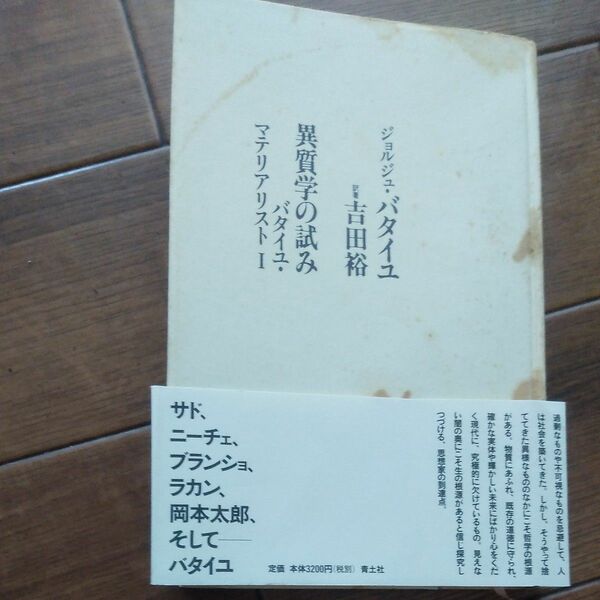 ジョルジュ・バタイユ
訳著 吉田裕
異質学の試み
バタイユ・
マテリアリスト I
過剰なものや不可視なものを忌避して、人
は社会を築いてきた。しかし、そうやって捨
ててきた異様なもののなかにこそ哲学の根源
がある。物質にあふれ、既存の道徳に守られ、
確かな実体や輝かしい未来にばかり心をくだ
く現代に、究極的に欠けているもの。見えな
い闇の奥にこそ生の根源があると信じ探究し
つづける、思想家の到達点。
サド、
ニーチェ、
ブランショ、
ラカン、
岡本太郎、
そして――
バタイユ
定価 本体3200円(税別) 青土社